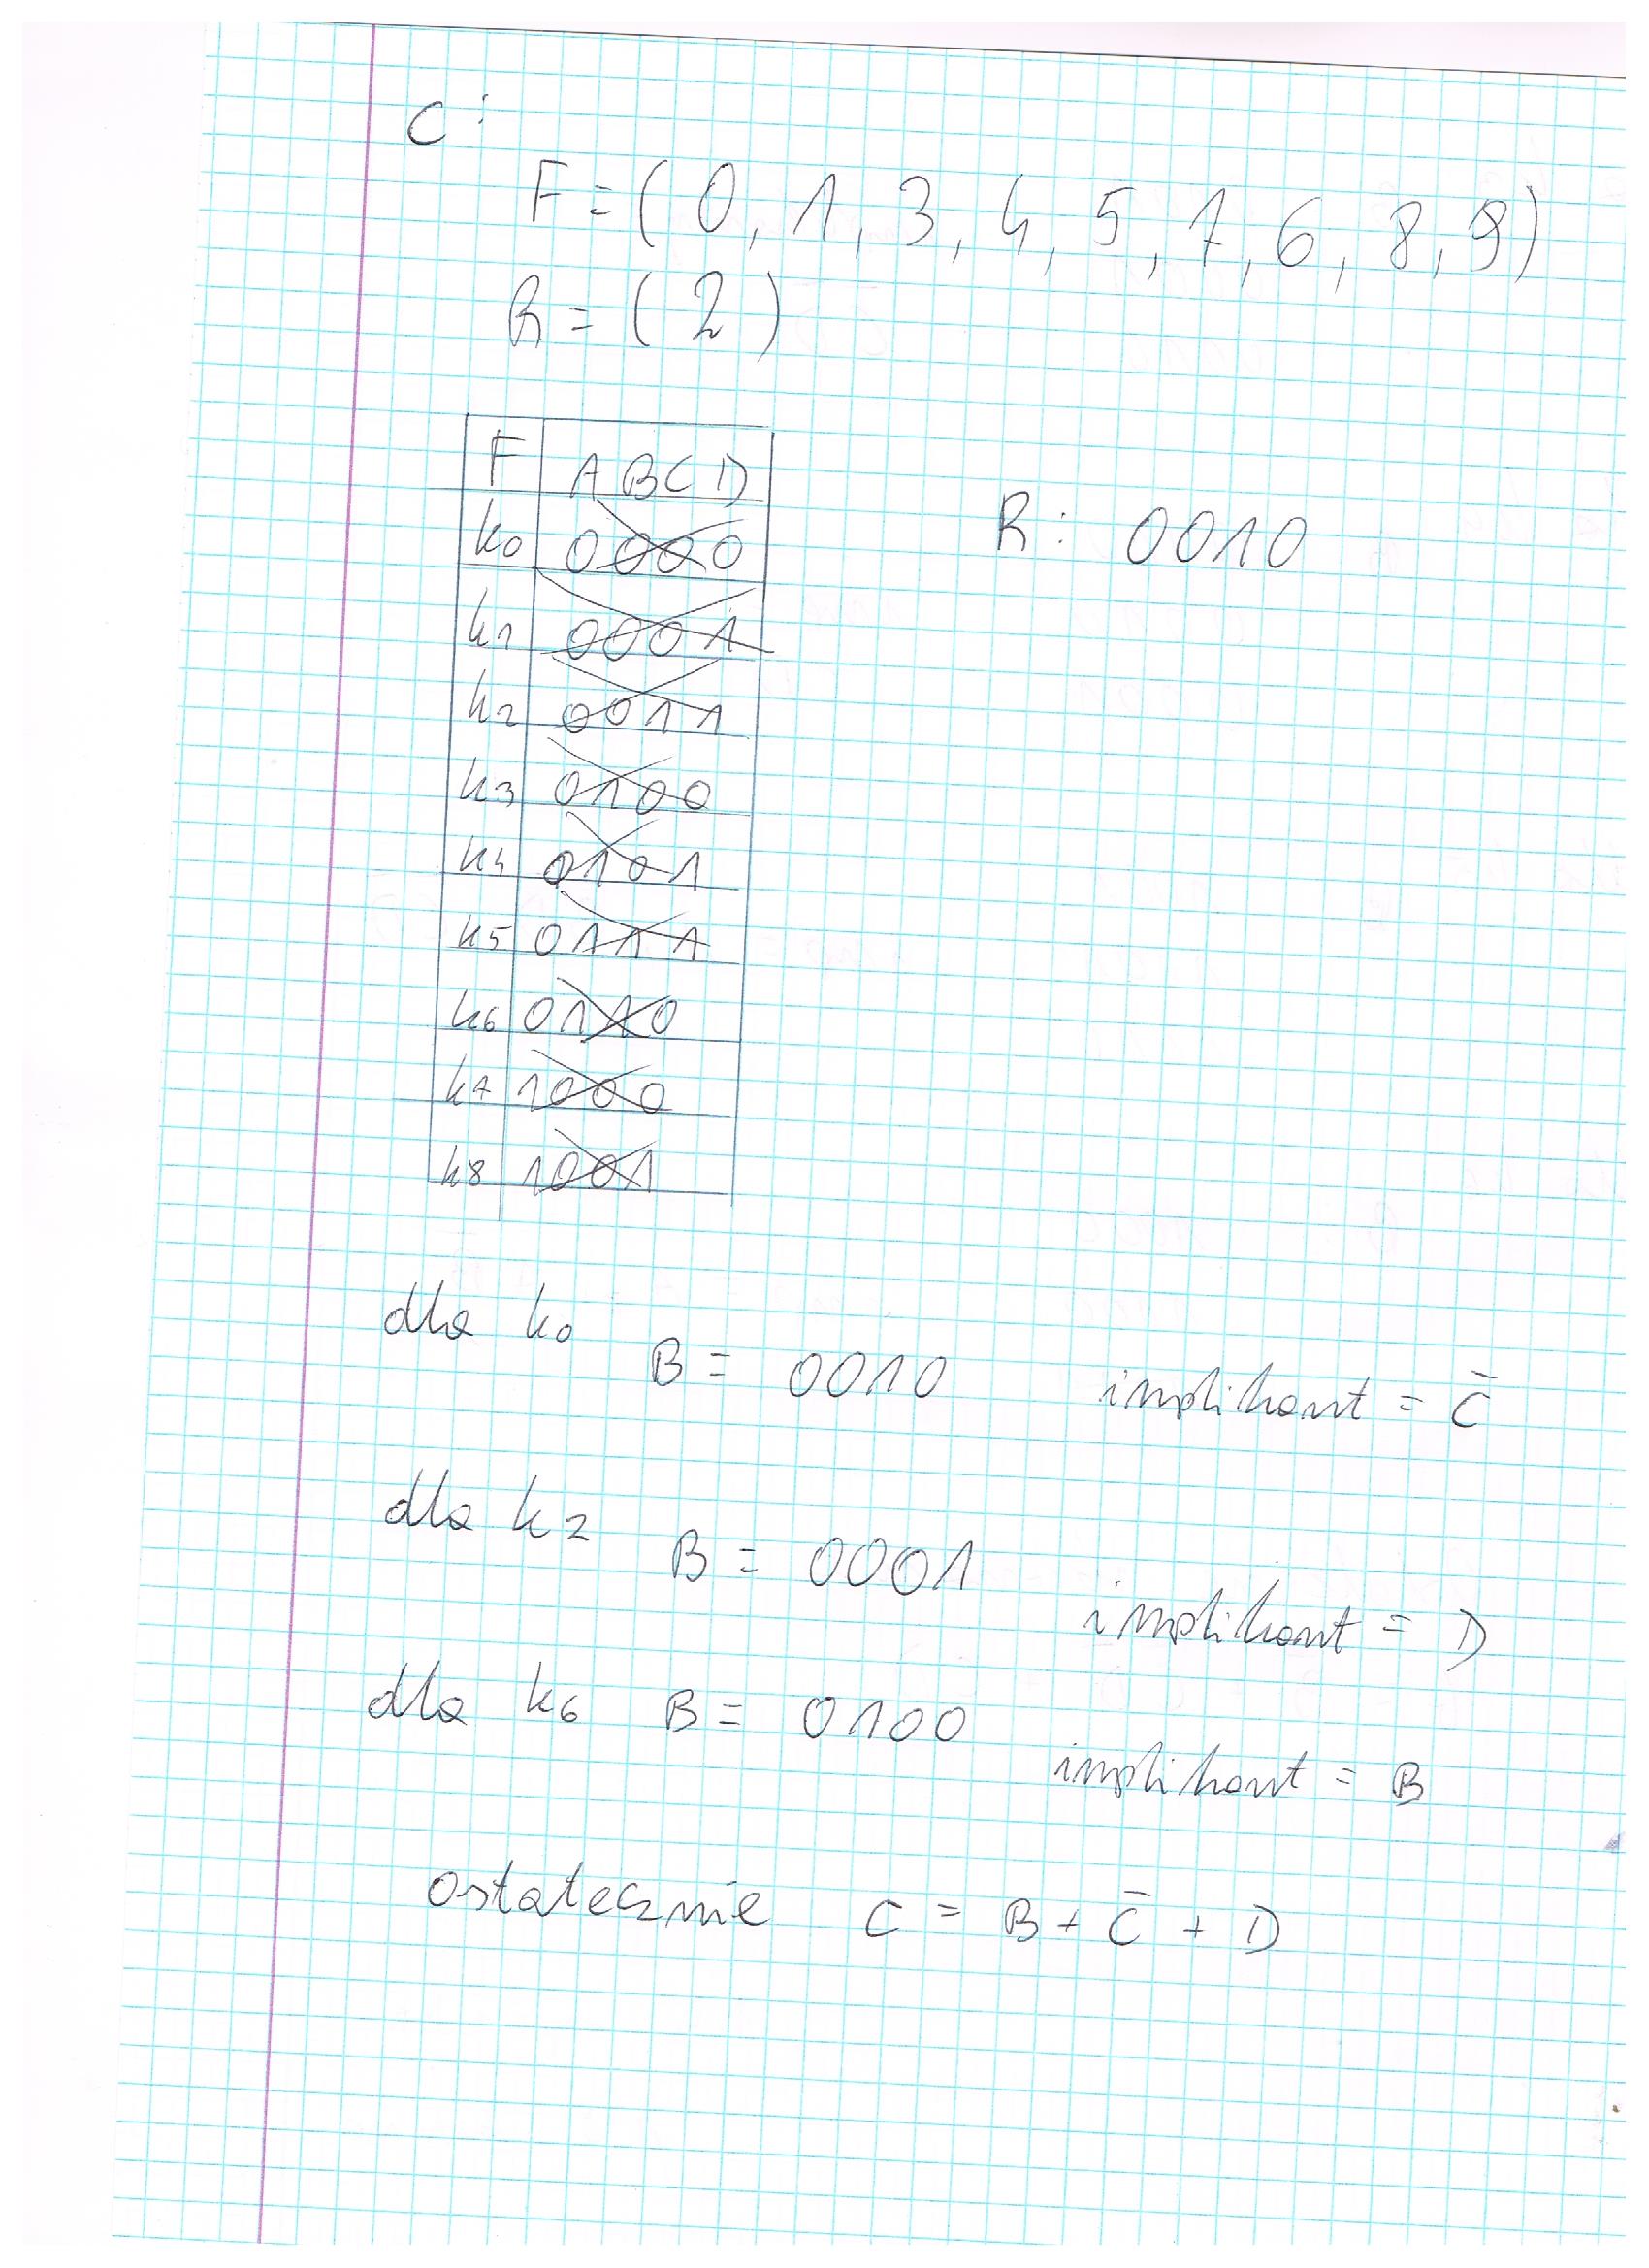 C:
F = ( 0, 1, 3, 4, 5, 7, 6, 8, 9)
R = ( 2 )
F A B C D
k0 0000
R: 0010
k1 0001
k2 0011
k3 0100
k4 0101
k5 0111
k6 0110
k7 1000
k8 1001
dla k0 B = 0010 implikant = C̄
dla k2 B = 0001 implikant = D
dla k6 B = 0100 implikant = B
ostatecznie C = B + C̄ + D